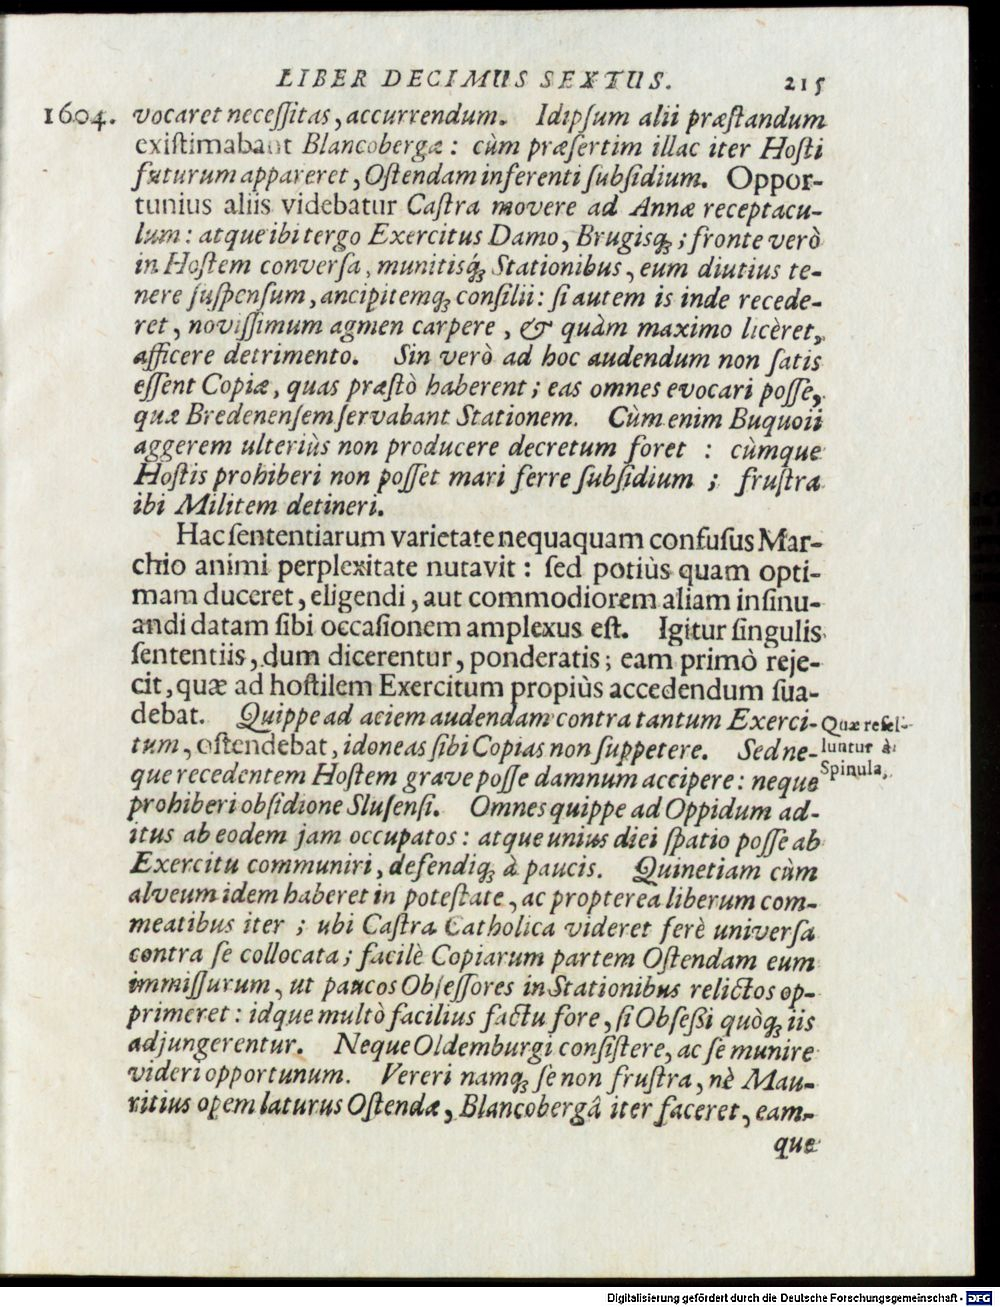 LIBER DECIMUS SEXTUS. 215
1604. vocaret neceſſitas, accurrendum. Idipſum alii præſtandum
exiſtimabant Blancobergæ: cùm præſertim illac iter Hoſti
futurum appareret, Oſtendam inferenti ſubſidium. Oppor-
tunius aliis videbatur Caſtra movere ad Annæ receptacu-
lum: atque ibi tergo Exercitus Damo, Brugisq́; fronte verò
in Hoſtem converſa, munitisq́; Stationibus, eum diutius te-
nere ſuſpenſum, ancipitemq́; conſilii: ſi autem is inde recede-
ret, noviſſimum agmen carpere, & quàm maximo licèret,
afficere detrimento. Sin verò ad hoc audendum non ſatis
eſſent Copiæ, quas præſtò haberent; eas omnes evocari poſſe,
quæ Bredenenſem ſervabant Stationem. Cùm enim Buquoii
aggerem ulteriùs non producere decretum foret: cùmque
Hoſtis prohiberi non poſſet mari ferre ſubſidium; fruſtra
ibi Militem detineri.
Hac ſententiarum varietate nequaquam confuſus Mar-
chio animi perplexitate nutavit: ſed potiùs quam opti-
mam duceret, eligendi, aut commodiorem aliam inſinu-
andi datam ſibi occaſionem amplexus eſt. Igitur ſingulis
ſententiis, dum dicerentur, ponderatis; eam primò reje-
cit, quæ ad hoſtilem Exercitum propiùs accedendum ſua-
debat. Quippe ad aciem audendam contra tantum Exerci-
tum, oſtendebat, idoneas ſibi Copias non ſuppetere. Sed ne-
que recedentem Hoſtem grave poſſe damnum accipere: neque
prohiberi obſidione Sluſenſi. Omnes quippe ad Oppidum ad-
itus ab eodem jam occupatos: atque unius diei ſpatio poſſe ab
Exercitu communiri, defendiq́; à paucis. Quinetiam cùm
alveum idem haberet in poteſtate, ac propterea liberum com-
meatibus iter; ubi Caſtra Catholica videret ferè univerſa
contra ſe collocata; facilè Copiarum partem Oſtendam eum
immiſſurum, ut paucos Obſeſſores in Stationibus relictos op-
primeret: idque multò facilius factu fore, ſi Obſeßi quòq́; iis
adjungerentur. Neque Oldemburgi conſiſtere, ac ſe munire
videri opportunum. Vereri namq́; ſe non fruſtra, nè Mau-
ritius opem laturus Oſtendæ, Blancobergâ iter faceret, eam-
que
Quæ refel-
luntur à
Spinula.
Digitalisierung gefördert durch die Deutsche Forschungsgemeinschaft - DFG